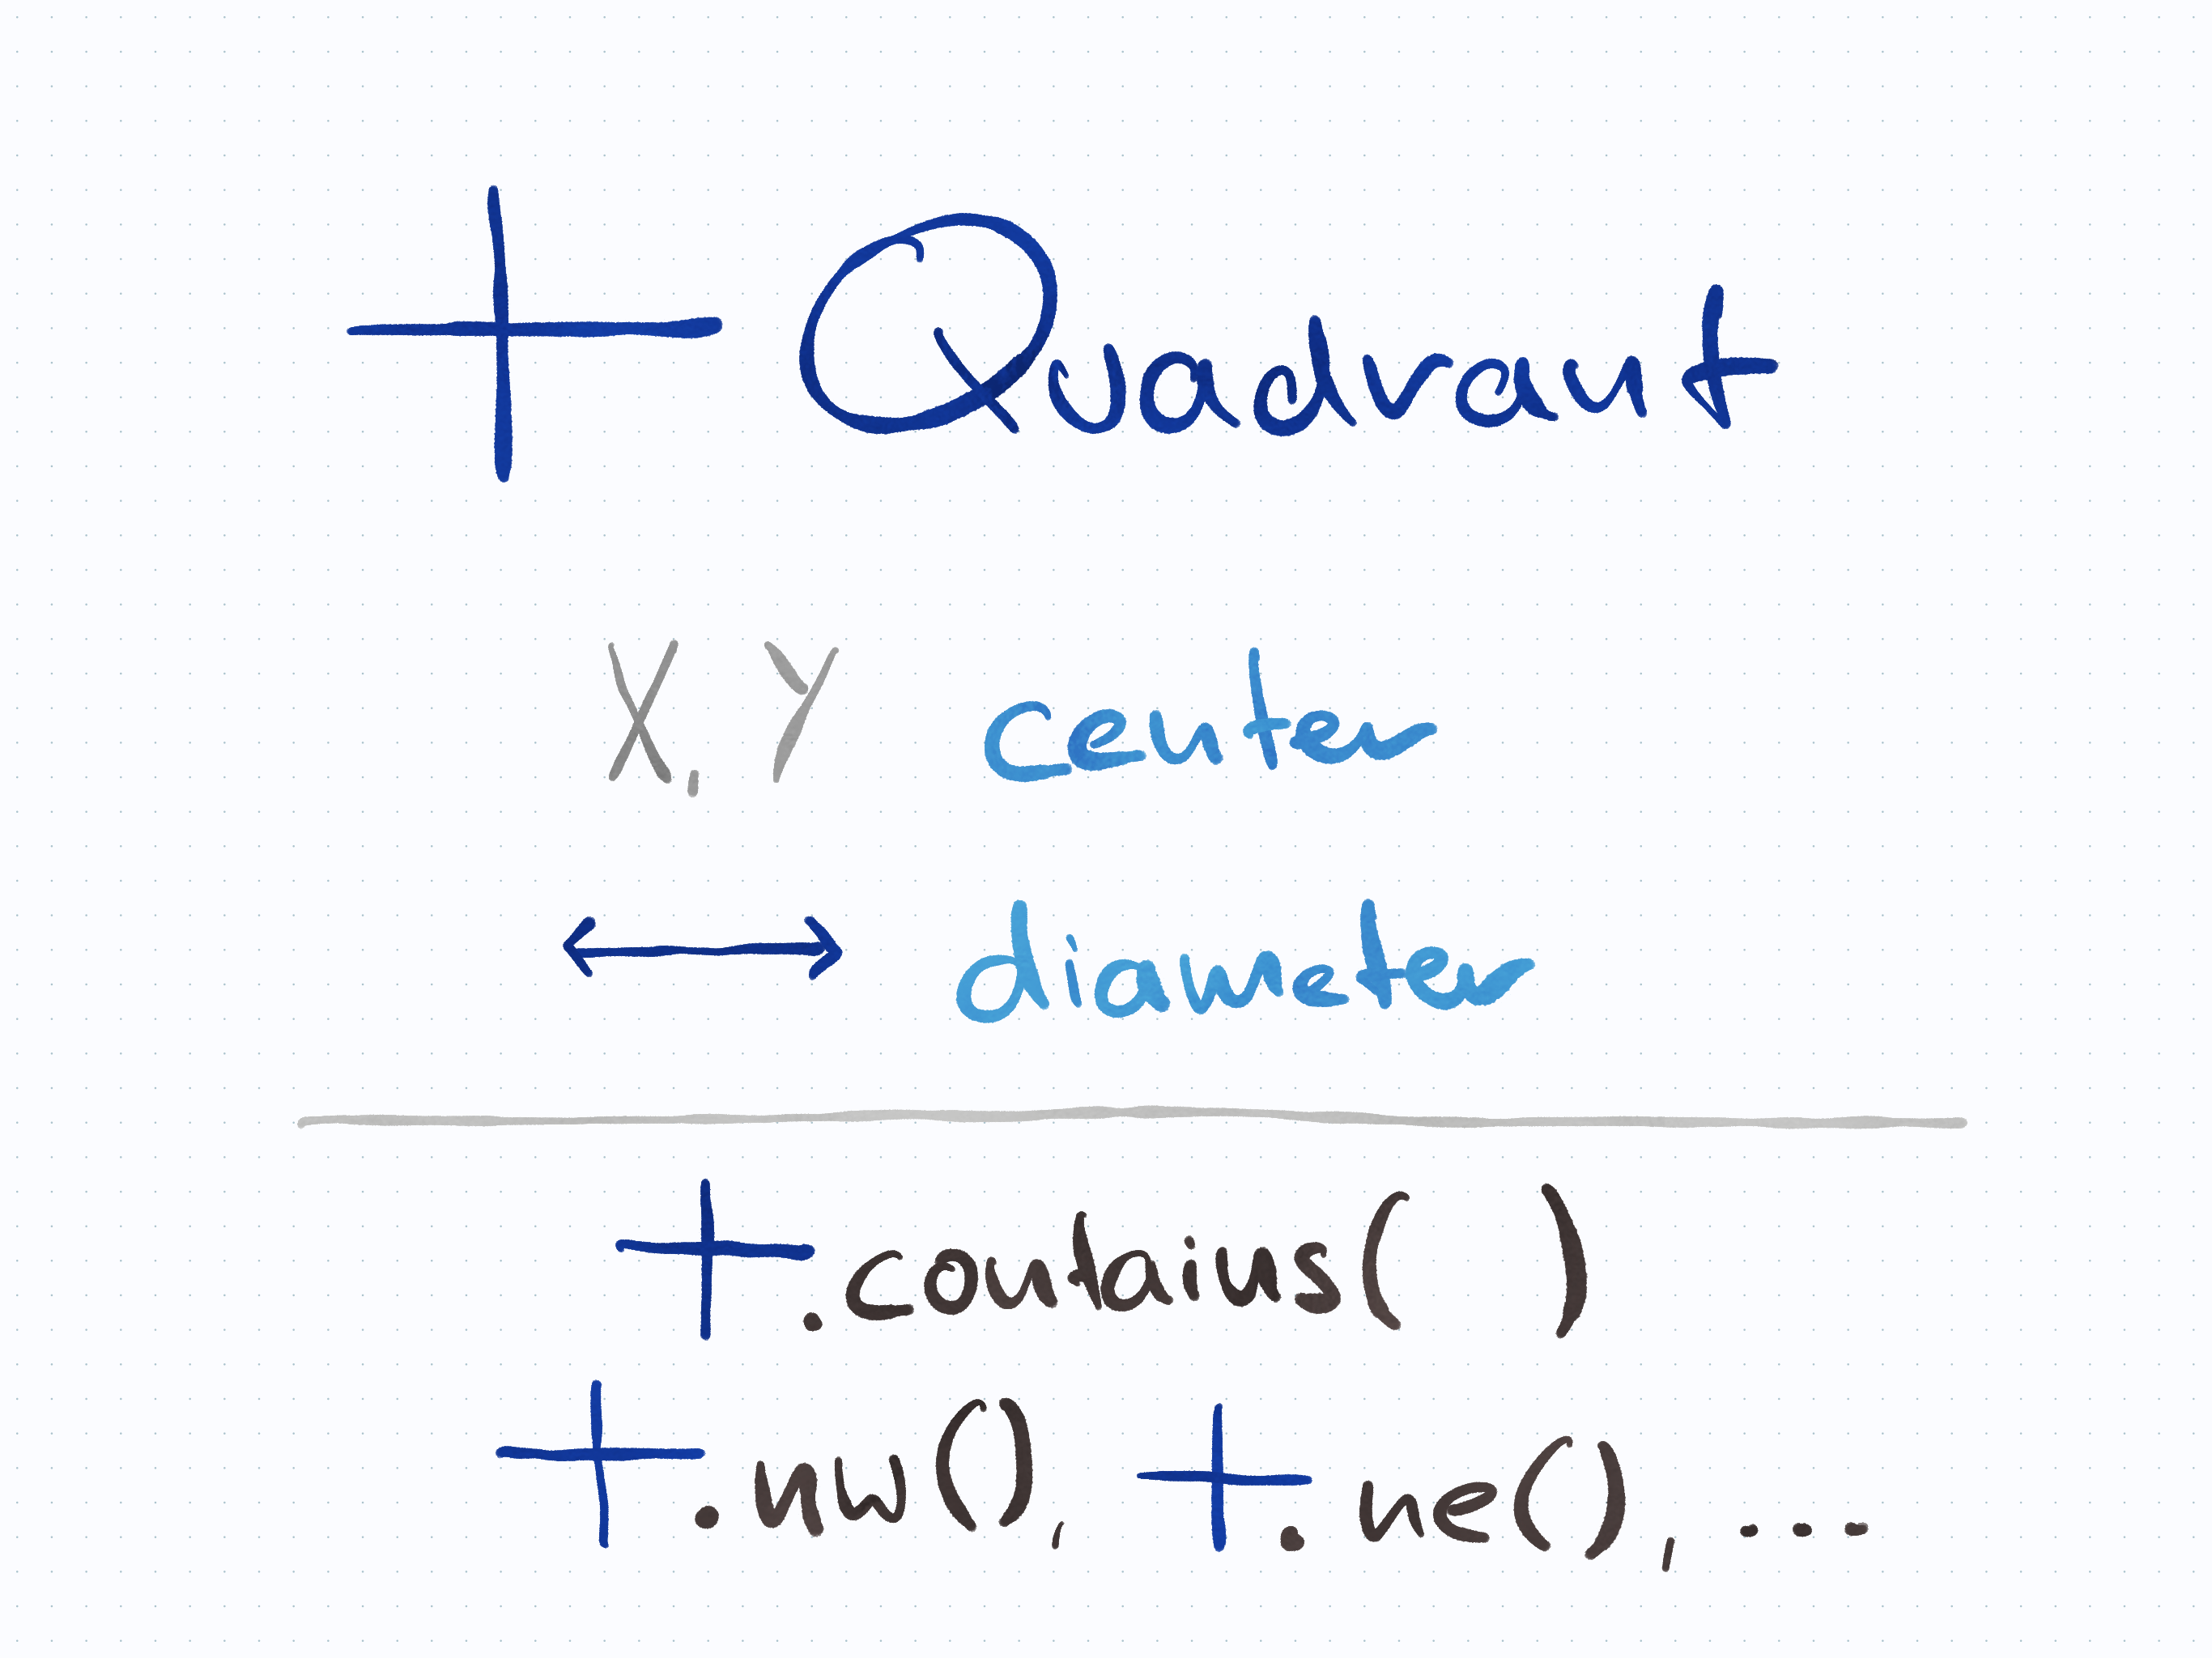 + Quadrant
X, Y center
↔ diameter
+.contains( )
+.nw(), +.ne(), ...